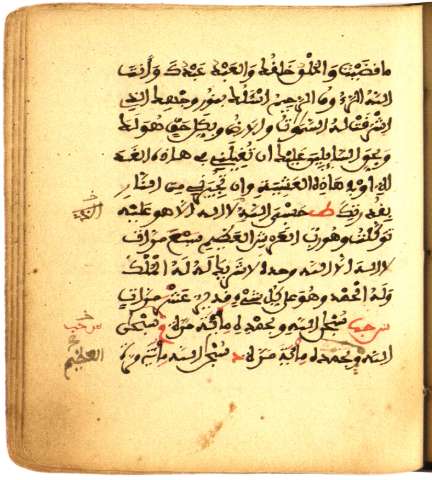 ما قضيت والخلق خلقك والعبد عبدك وأنت
الله الرءوف الرحيم أسئلك بنور وجهك الذي
أشرقت له السموات والارض وبكل حق هو لك
وبحق السايلين عليك أن تقيلني في هاذه الغد
اة او في هاذه العشية وان تجيرني من النار
بقدرتك طب حسبي الله لا اله الا هو عليه
توكلت وهو رب العرش العظيم سبع مرات
لا اله الا الله وحده لا شريك له له الملك
وله الحمد وهو على كل شيء قدير عشر مرات
سبحن الله وبحمده مائة مرة سبحن
الله وبحمده مائة مرة د سبحن الله مائة مرة
العظيم